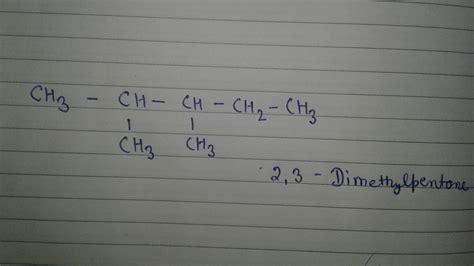 CH3 - CH - CH - CH2 - CH3
CH3 CH3
2,3 - Dimethylpentane